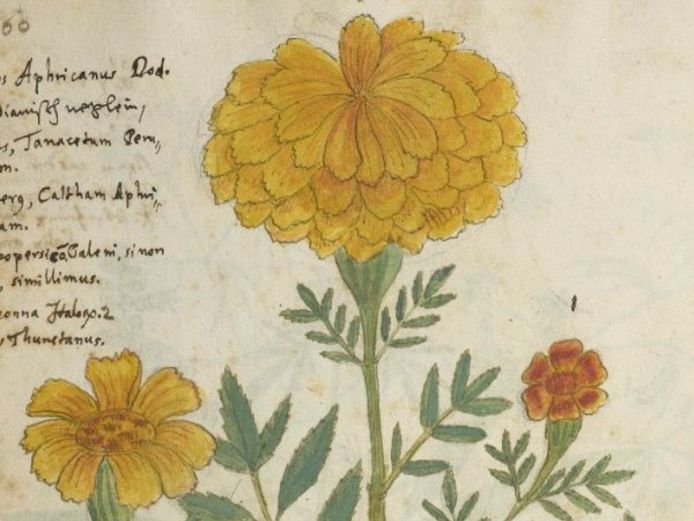 60
s Aphricanus Dod.
dianisch neglein,
s, Tanacetum Peru,,
m.
erg, Caltham Aphri,,
am.
opersicō Galeni, si non
, simillimus.
onna Italoꝝ. 2
s Thunetanus.
1